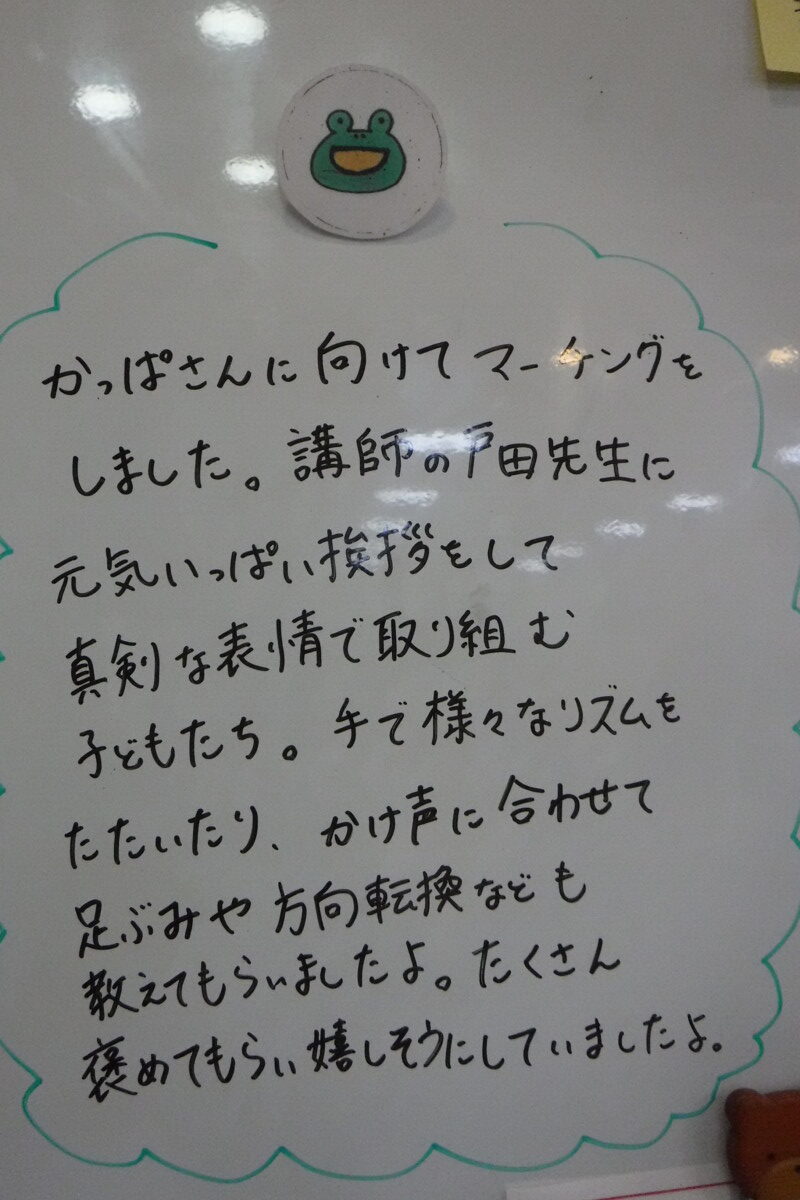 かっぱさんに向けてマーケングを
しました。講師の戸田先生に
元気いっぱい挨拶をして
真剣な表情で取り組む
子どもたち。手で様々なリズムを
たたいたり、かけ声に合わせて
足ぶみや方向転換なども
教えてもらいましたよ。たくさん
褒めてもらい嬉しそうにしていましたよ。